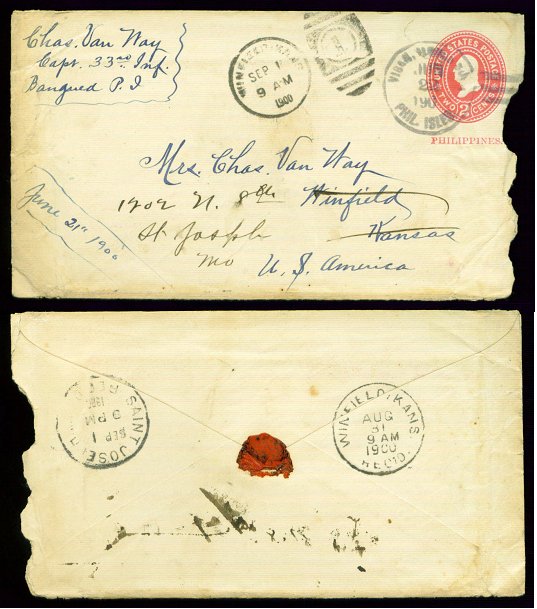 Chas. Van Way
Capt. 33rd Inf.
Bangued P. I
WINFIELD, KANS.
SEP 1
9 AM
1900
VIGAN,
PHIL. ISLDS
UNITED STATES POSTAGE
TWO 2 CENTS
PHILIPPINES.
Mrs. Chas. Van Way
1202 N. 8th Winfield
St Joseph Kansas
Mo U. S. America
June 21st 1900
SAINT JOSEPH
SEP 1
9 PM
REC'D.
WINFIELD, KANS
AUG
31
9 AM
1900
REC'D.